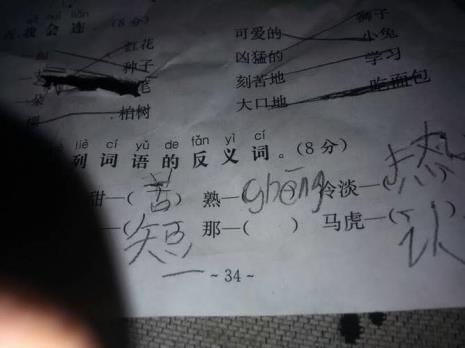 我会连。(8分)
红花 可爱的 狮子
种子 凶猛的 小兔
笔 刻苦地 学习
朵 柏树 大口地 吃面包
liè cí yǔ de fǎn yì cí
列词语的反义词。(8分)
甜—(苦) 熟—shēng 冷淡—(热
—(短 那—( ) 马虎—(认
~34~